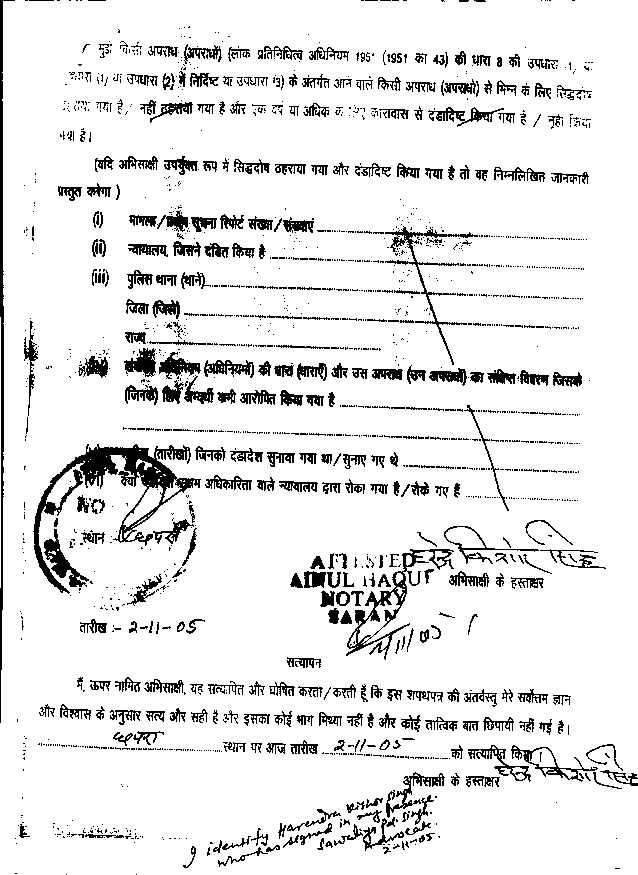 मुझे किसी अपराध (अपराधों) (लोक प्रतिनिधित्व अधिनियम 1951 (1951 का 43) की धारा 8 की उपधारा
(1) या उपधारा (2) में निर्दिष्ट या उपधारा (3) के अंतर्गत आने वाले किसी अपराध (अपराधो) से भिन्न के लिए सिद्धदोष
गया है / नहीं ठहराया गया है और एक वर्ष या अधिक के लिए कारावास से दंडादिष्ट किया गया है / नहीं किया
गया है।
(यदि अभिसाक्षी उपर्युक्त रूप में सिद्धदोष ठहराया गया और दंडादिष्ट किया गया है तो वह निम्नलिखित जानकारी
प्रस्तुत करेगा )
(i) मामला/प्रथम सूचना रिपोर्ट संख्या/संख्याएं
(ii) न्यायालय, जिसने दंडित किया है
(iii) पुलिस थाना (थाने)
जिला (जिले)
राज्य
अधिनियम (अधिनियमों) की धारा (धाराएँ) और उस अपराध (उन अपराधों) का संक्षिप्त विवरण जिसके
(जिनके) लिए अभ्यर्थी आरोपित किया गया है
(तारीखों) जिनको दंडादेश सुनाया गया था/सुनाए गए थे
(vi) क्या अधिकारिता वाले न्यायालय द्वारा रोका गया है/रोके गए हैं
NO
स्थान :- छपरा
हरेन्द्र किशोर सिंह
ATTESTED
AINUL HAQUE
अभिसाक्षी के हस्ताक्षर
NOTARY
SARAN
तारीख :- 2-11-05
2/11/05
सत्यापन
मैं, ऊपर नामित अभिसाक्षी, यह सत्यापित और घोषित करता/करती हूँ कि इस शपथपत्र की अंतर्वस्तु मेरे सर्वोत्तम ज्ञान
और विश्वास के अनुसार सत्य और सही है और इसका कोई भाग मिथ्या नहीं है और कोई तात्विक बात छिपायी नहीं गई है।
छपरा स्थान पर आज तारीख 2-11-05 को सत्यापित किया।
हरेन्द्र किशोर सिंह
अभिसाक्षी के हस्ताक्षर
I identify Harendra Kishor Singh
who has signed in my presence.
Pd. Singh.
Advocate.
2-11-05.